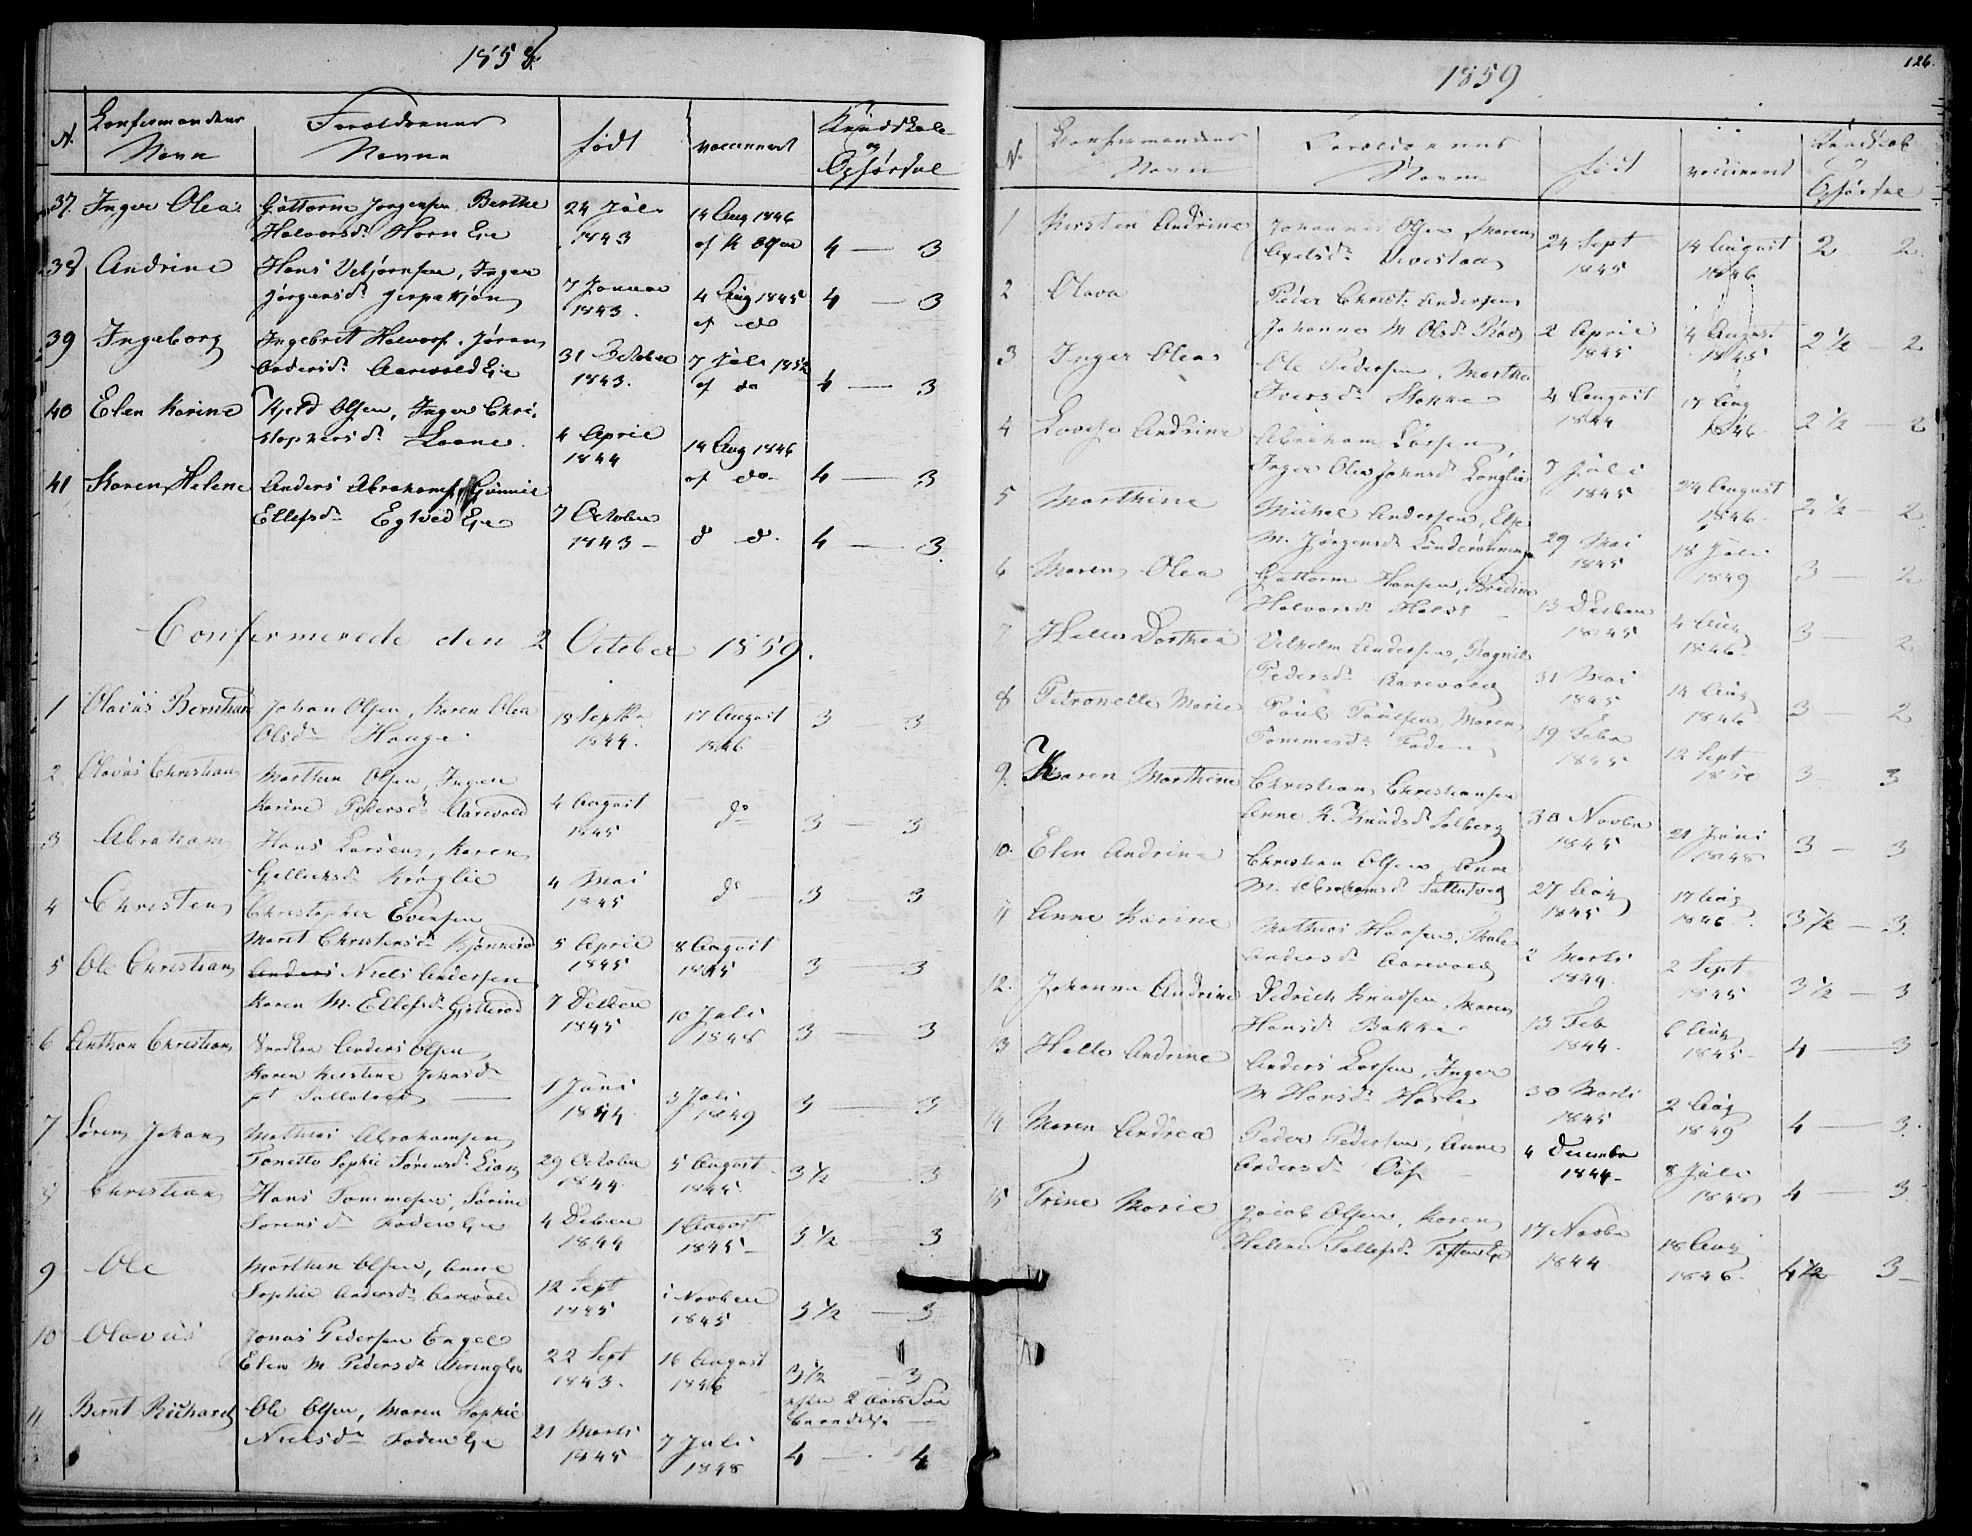 1858.
N. Confirmandens Navn Foreldrenes Navne født vaccineret Kundskab og Opførsel
37. Inger Olea Guttorm Jørgensen Berthe 24 Juli 14 Aug 1846
Halvorsdr Horn Eie 1843 af K Olsen 4 — 3
38 Andrine Hans Vebjørnsen, Inger
Jørgensdr 7 Januar 1843. 4 Aug 1845 af do 4 — 3
39 Ingeborg Ingebret Halvors. Jøran
Andersdr Aarevold Eie 31 October 1843. 7 Juli 1852 af do 4 — 3
40 Elen Karine Kield Olsen, Inger Chri-
stophersdr Laane. 4 April 1844 14 Aug 1846 af do 4 — 3
41 Karen Helene Anders Abrahams, Gunnil
Ellefsdr Egtved Eie 7 October 1843 — d do. 4 — 3.
Confirmerede den 2 October 1859.
1 Olaüs Bernthard Johan Olsen, Karen Olea
Olsdr Hauge 18 Septbr 1844. 17 August 1846 3 — 3
2 Olaüs Christian Marthin Olsen, Inger
Karine Pedersdr Aarevold 4 August 1845 do 3 — 3
3 Abraham Hans Larsen, Karen
Gulliksdr Krøglie 4 Mai 1845 do 3 — 3
4 Christen Christopher Evensen
Marit Christensdr Kjønnerød 5 April 1845 8 August 1845 3 — 3
5 Ole Christian Anders Niels Andersen
Karen M. Ellefsdr Gjetterød 7 Decbr 1845 10 Juli 1848 3 — 3
6 Anthon Christian Anders Olsen
Karen Kirstine Johnsdr
1 Juni 1844 3 Juli 1849 3 — 3
7 Søren Johan Mathias Abrahamsen
Tonette Sophie Sørensdr Lian 29 October 1844 5 August 1845 3 1/2 3
8 Christian Hans Tommesen, Sørine
Sørensdr Foden Eie 4 Decbr 1844 1 August 1845 3 1/2 — 3
9 Ole Marthin Olsen, Anne
Sophie Andersdr Aarevold 12 Sept 1845 1 Novbr 1845 3 1/2 — 3
10 Olavus Jonas Pedersen Engel
Elen M Pedersdr 22 Sept 1843. 16 August 1846 3 1/2 — 3
efter 2 Aars
11 Bernt Richard Ole Olsen, Maren Sophie
Nielsdr Foden Eie 21 Marts 1845 7 Juli 1848 4 — 4
126.
1859
No Confirmandens Navn Foreldrenes Navne født vaccineret Kundskab og Opførsel
1 Kirsten Andrine Johannes Olsen Maren
Axelsdr 24 Sept 1845 14 August 1846 2 2.
2 Olava Peder Christ. Andersen
Johanne M Olsdr Røed 2 April 1845 4 August 1845 2 1/2 — 2
3 Inger Olea Ole Pedersen, Marthe
Iversdr Stokke 4 August 1844 17 Aug 1846 2 1/2 — 2
4 Lovise Andrine Abraham Larsen
Inger Olea Johnsdr Langlie 7 Juli 1845 24 August 1846 2 1/2 — 2
5 Marthine Michel Andersen, Else
M. Jørgensdr Lunderønningen 29 Mai 1845 18 Juli 1849 3 — 2
6 Maren Olea Guttorm Hansen, Andrine
Halvorsdr Holst 13 Decbr 1845 4 Aug 1846 3 — 2
7 Helle Dorthea Vilhelm Andersen, Ragnil
Pedersdr Aarevold 31 Mai 1845 14 Aug 1846 3 — 2
8 Petronelle Marie Poul Poulsen, Maren
Tommesdr Foden 19 Febr 1845 12 Sept 1850 3 — 3
9. Karen Marthine Christian Christiansen
Anne K. Knudsdr Solberg 30 Novbr 1845 21 Juni 1848 3 — 3
10. Elen Andrine Christian Olsen, Anne
M. Abrahamsdr 27 Aug 1845 17 Aug 1846 3 1/2 — 3.
11 Anne Karine Mathias Hansen,
Andersdr Aarevold 2 Marts 1844. 2 Sept 1845 3 1/2 — 3
12. Johanne Andrine Didrich Knudsen, Karen
Hansdr Bakke 13 Feb 1844. 6 Aug 1845 4 — 3
13 Helle Andrine Anders Larsen, Inger
M Hansdr Hasle 30 Marts 1845 2 Aug 1849 4 — 3.
14 Maren Andrea Peder Pedersen, Anne
Andersdr 4 December 1844. 8 Juli 1848 4 — 3
15 Trine Marie Jacob Olsen, Karen
Helene Tollefsdr 17 Novbr 1844 18 Aug 1846. 4 1/2 3 —